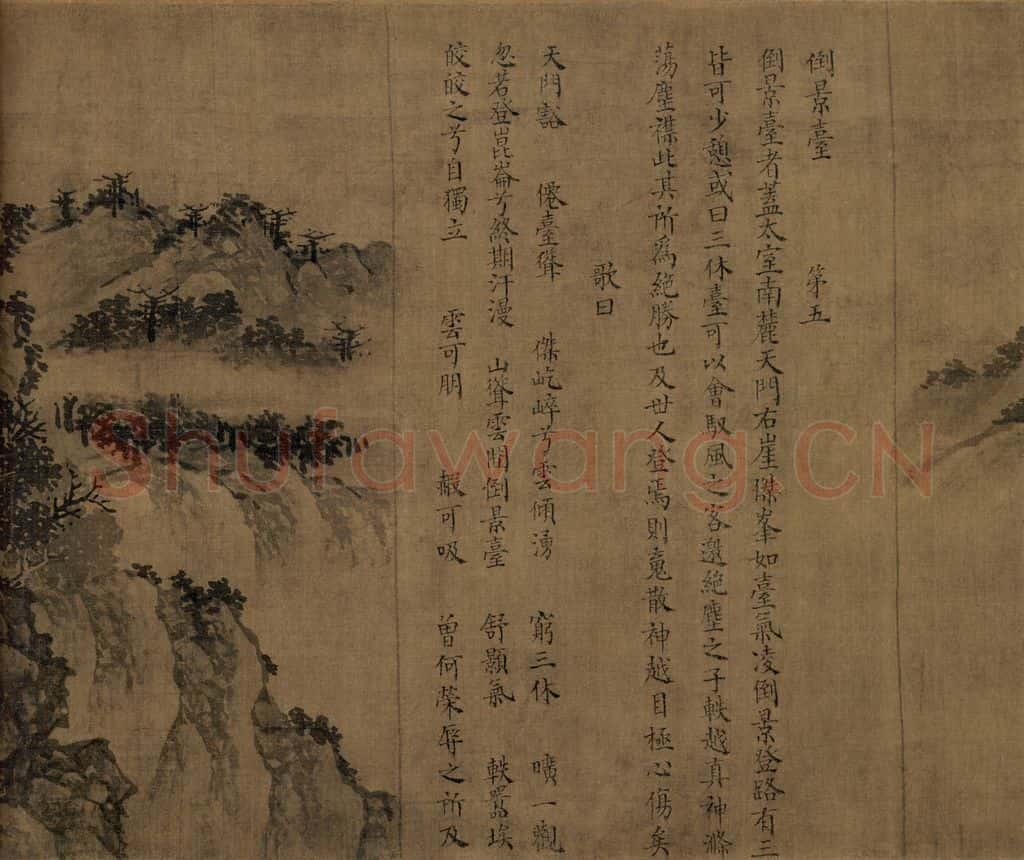 倒景臺 第五
倒景臺者蓋太室南麓天門右崖傑峯如臺氣凌倒景登路有三
皆可少憩或曰三休臺可以會馭風之客邀絕塵之子軼越真神滌
蕩塵襟此其所為絕勝也及世人登焉則䰟散神越目極心傷矣
歌曰
天門豁 僊臺聳 傑屹崪兮雲傾湧 窮三休 曠一觀
忽若登崑崙兮終期汗漫 山聳雲閒倒景臺 舒顥氣 軼囂埃
皎皎之兮自獨立 雲可朋 霞可吸 曾何榮辱之所及
Shufawang.CN